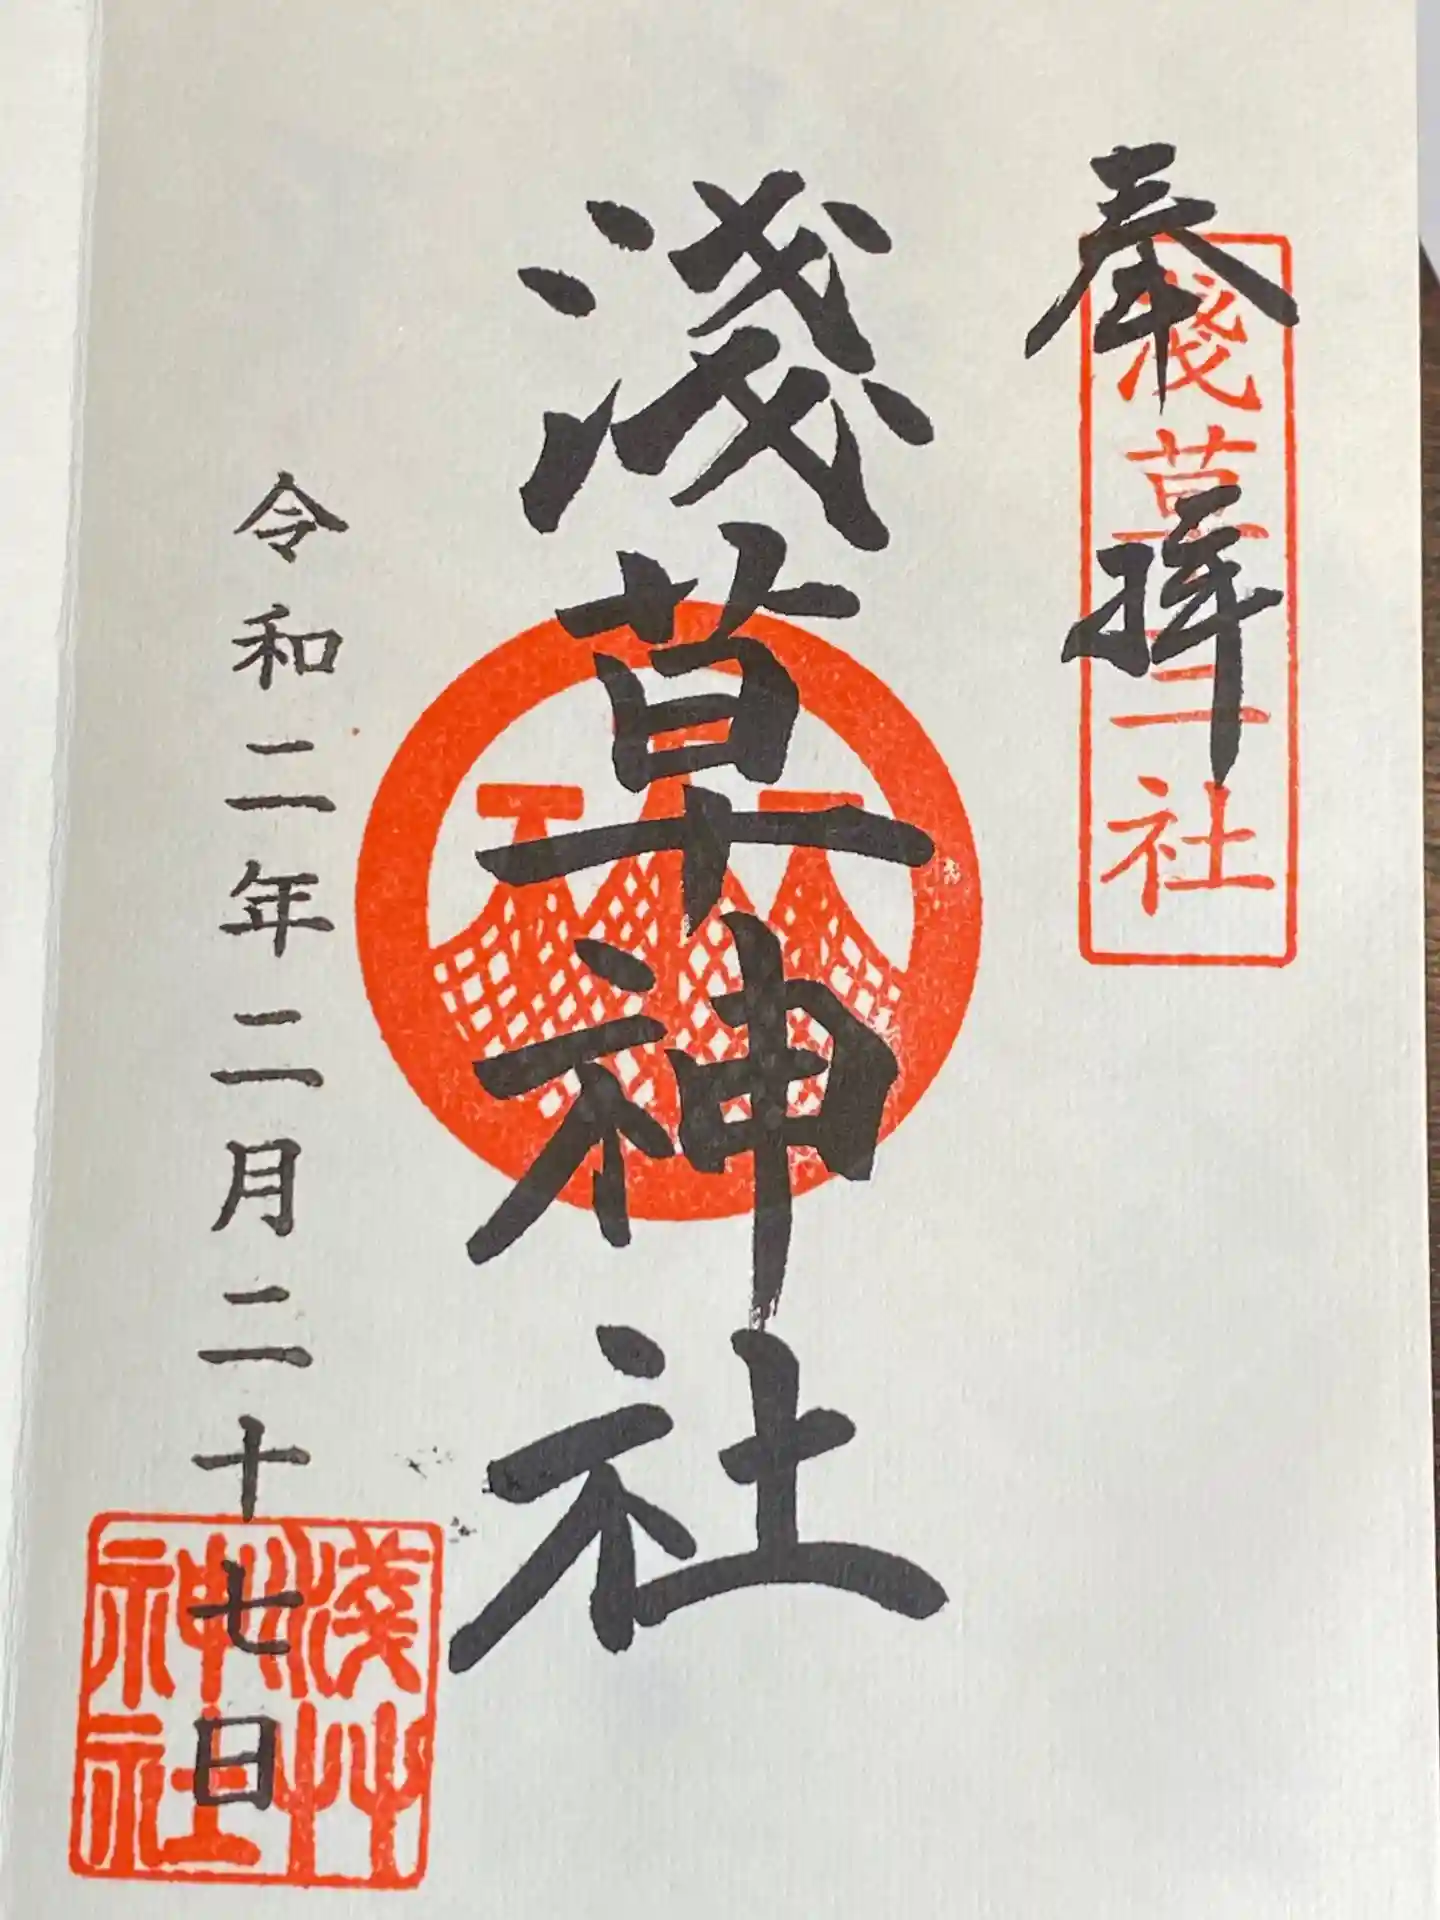 奉拝
淺草三社
淺草神社
令和二年二月二十七日
淺艸神社